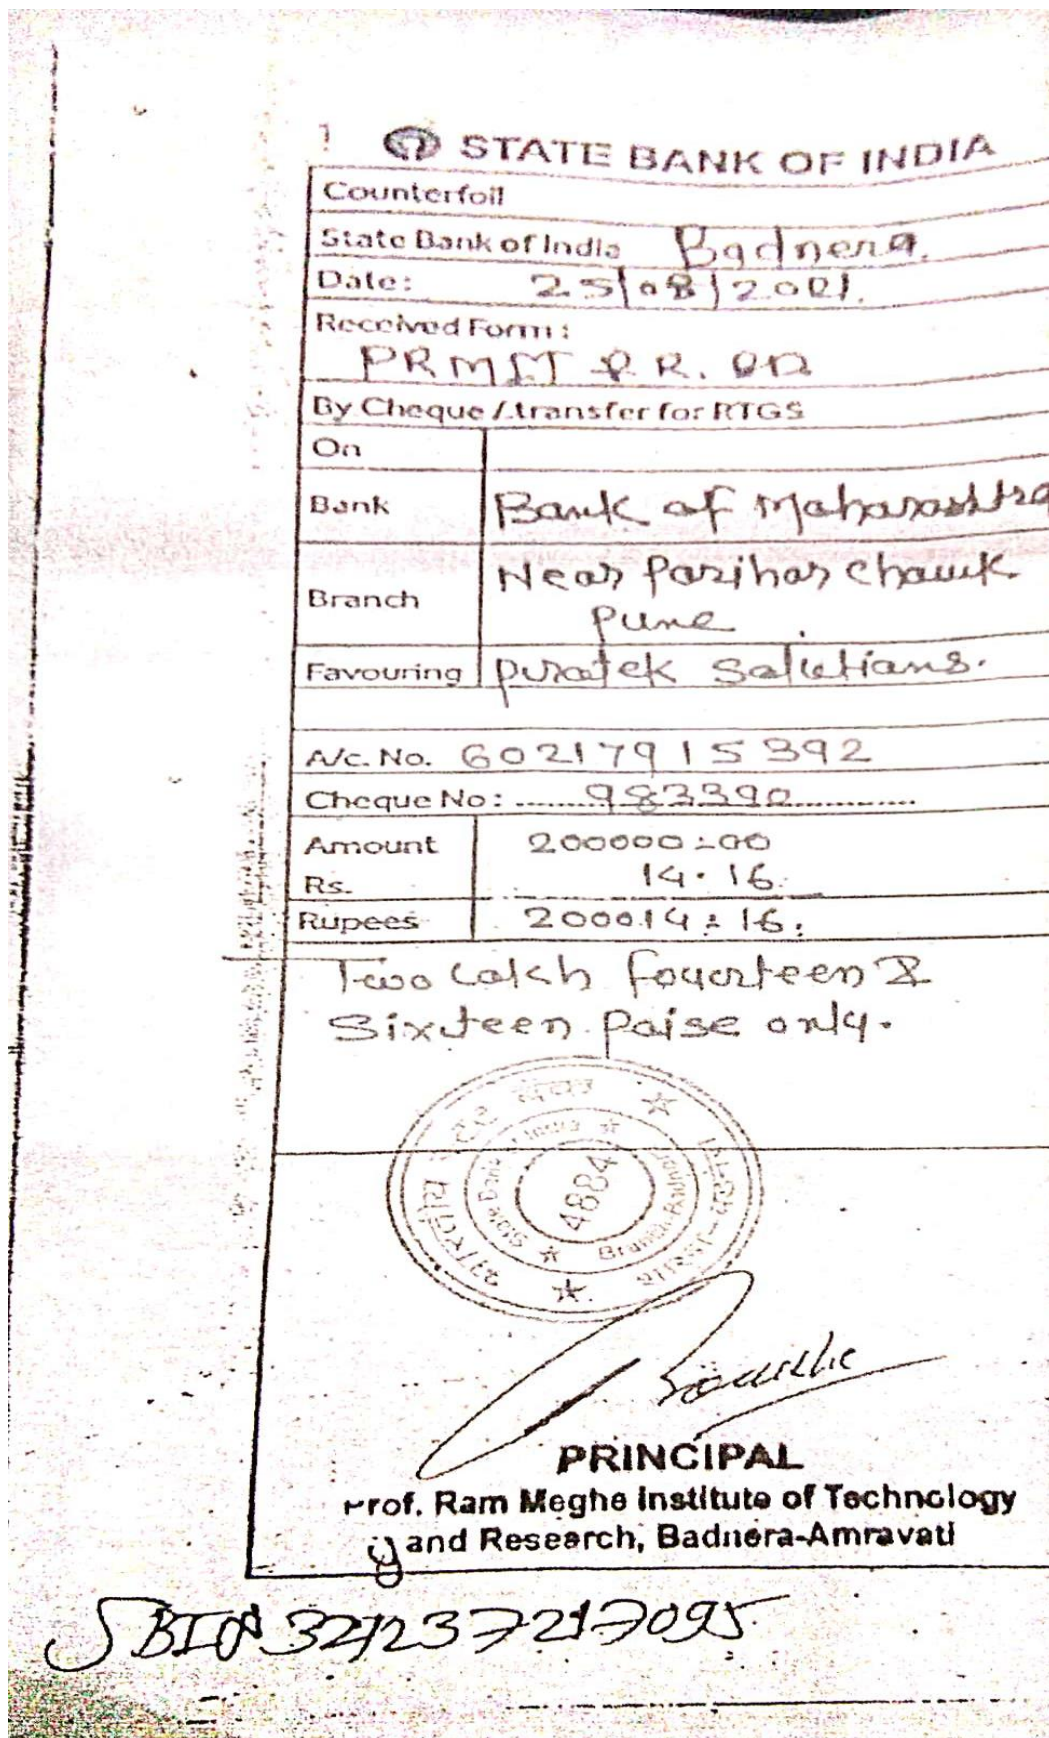 1 STATE BANK OF INDIA
Counterfoil
State Bank of India Badnera.
Date: 25/08/2021.
Received Form:
PRMIT P.R.
By Cheque / transfer for RTGS
On
Bank Bank of Maharashtra
Branch Near Parihar Chauk
Pune
Favouring Puratek Solutians.
A/c. No. 60217915392
Cheque No: 983390
Amount 200000=00
Rs. 14.16
Rupees 200014=16.
Two Lakh fourteen &
Sixteen Paise only.
भारतीय स्टेट बैंक
State Bank of India
4884
Branch
शाखा
PRINCIPAL
Prof. Ram Meghe Institute of Technology
and Research, Badnera-Amravati